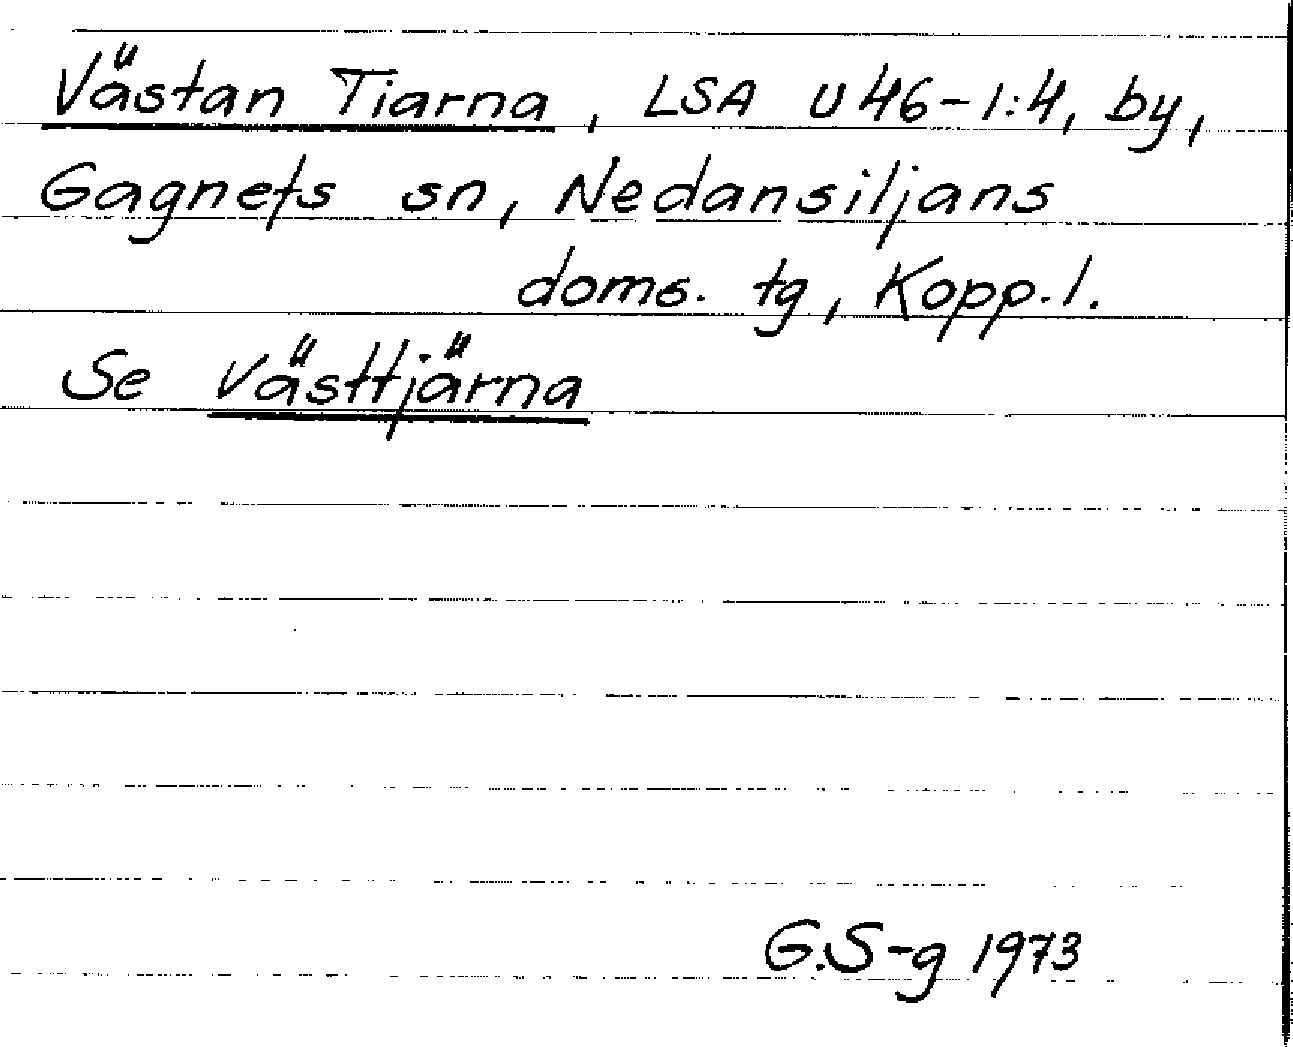 Västan Tiarna, LSA U46-1:4, by,
Gagnefs sn, Nedansiljans
doms. tg, Kopp. l.
Se Västtjärna
G.S-g 1973